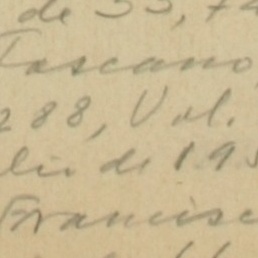 de 33,74
Toscano
288, Vol.
de 195
Francisc